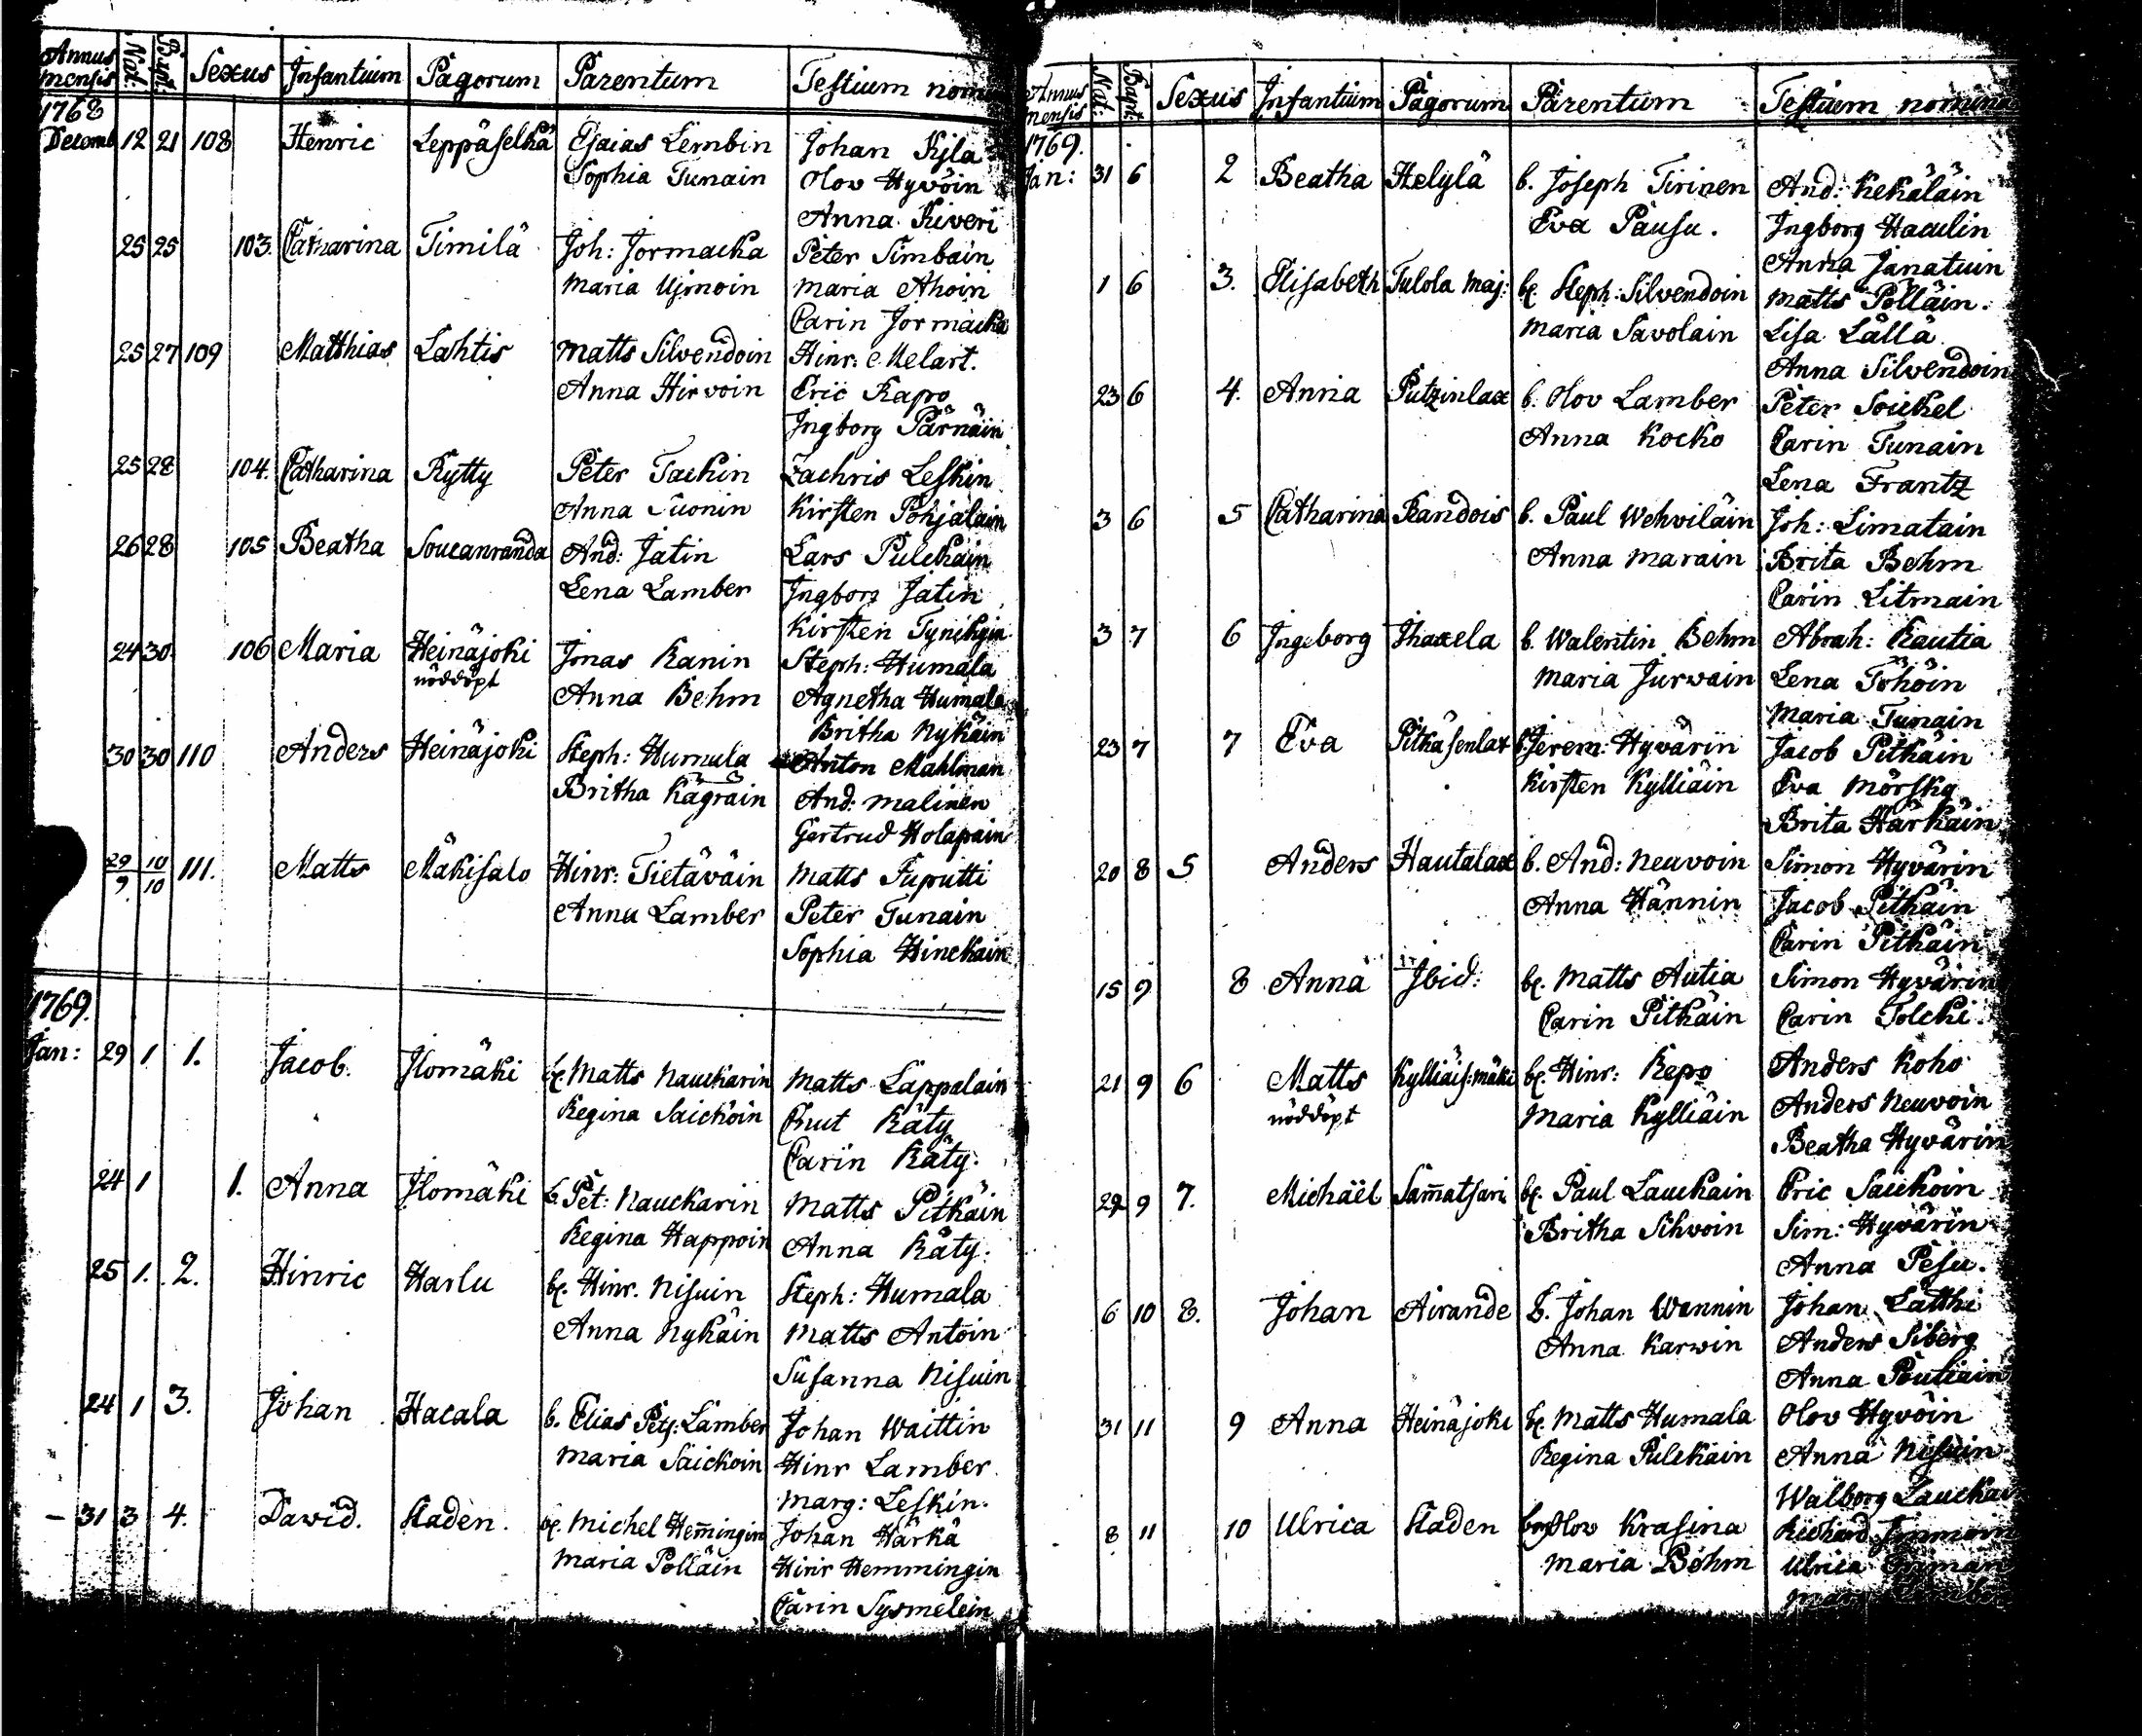 Annus mensis Nat: Bapt: Sexus Infantium Pagorum Parentum Testium nom
1768
Decemb 12 21 108 Henric Leppäselkä Esaias Lembin Johan Kjla
Sophia Tunain Olov Hyvöin
Anna Kiveri
25 25 103. Catharina Timilä Joh: Jormacka Peter Simbain
Maria Ujmoin Maria Ahoin
Carin Jormacka
25 27 109 Matthias Lahtis Matts Silvendoin Hinr: Melart.
Anna Hirvoin Eric Kapo
Ingborg Pärnäin
25 28 104. Catharina Rytty Peter Tackin Zachris Leskin
Anna Suonin Kirsten Pohjalain
26 28 105 Beatha Soucanranda And: Jatin Lars Pulckain
Lena Lamber Ingborg Jatin
Kirsten Tynikyin
24 30 106 Maria Heinäjoki Jonas Kanin Steph: Humala
nöddöpt
Anna Behm Agnetha Humala
Britha Nykäin
30 30 110 Anders Heinäjoki Steph: Humula Anton Mahlman
Britha Kägräin And: Malinen
Gertrud Holapain
29/9 10/10 111. Matts Mäkisalo Hinr: Tietäväin Matts Fuputti
Anna Lamber Peter Tunain
Sophia Hinckain
1769.
Jan: 29 1 1. Jacob. Ilomäki bx. Matts Nauckarin Matts Lappalain
Regina Saickoin Cnut Räty
Carin Räty.
24 1 1. Anna Ilomäki b. Pet: Nauckarin Matts Pitkäin
Regina Happoin Anna Räty.
25 1. 2. Hinric Harlu bx. Hinr. Nisuin Steph: Humala
Anna Nykäin Matts Antoin
Susanna Nisuin
24 1 3. Johan Hacala b. Elias Pets: Lamber Johan Waittin
Maria Saickoin Hinr Lamber
Marg: Leskin.
– 31 3 4. David. Staden. bx. Michel Hem̄ingin Johan Härkä
Maria Polläin Hinr Hemmingin
Carin Sysmelein
Annus mensis Nat: Bapt: Sexus Infantium Pagorum Parentum Testium nomina
1769.
Jan: 31 6 2 Beatha Helylä b. Joseph Tirinen And: Kekäläin
Eva Pausu. Ingborg Haculin
Anna Janatuin
1 6 3. Elisabeth Tulola Maj: bx. Steph: Silvendoin Matts Pölläin.
Maria Savolain Lisa Lällä
Anna Silvendoin
23 6 4. Anna Putzinlax b. Olov Lamber Peter Soickel
Anna Kocko Carin Tunain
Lena Frantz
3 6 5 Catharina Randois b. Paul Wehviläin Joh: Limatain
Anna Marain Brita Behm
Carin Litmain
3 7 6 Ingeborg Ihaxela b. Walentin Behm Abrah: Rautia
Maria Jurvain Lena Töhöin
Maria Tunain
23 7 7 Eva Pitkäsenlax b. Jerem: Hyvärin Jacob Pitkäin
Kirsten Kylliäin Eva Mörsky
Brita Härkäin
20 8 5 Anders Hautalax b. And: Neuvoin Simon Hyvärin
Anna Hännin Jacob Pitkäin
Carin Pitkäin
15 9 8 Anna Ibid: bx. Matts Autia Simon Hyvärin
Carin Pitkäin Carin Tolcki.
21 9 6 Matts Kylliäis:mäki bx. Hinr: Repo Anders Koho
nöddöpt Maria Kylliäin Anders Neuvoin
Beatha Hyvärin
29 9 7. Michäel Sam̄atsari bx. Paul Lauckain Eric Saickoin
Britha Sihvoin Sim: Hyvärin
Anna Pesu.
6 10 8. Johan Airande b. Johan Wännin Johan Lätthi
Anna Karvin Anders Siberg
Anna Poutiain
31 11 9 Anna Heinäjoki bx. Matts Humala Olov Hyvöin
Regina Pulckain Anna Nisuin
Walborg Lauckai
8 11 10 Ulrica Staden Olov Krasina
Maria Böhm Ulrica